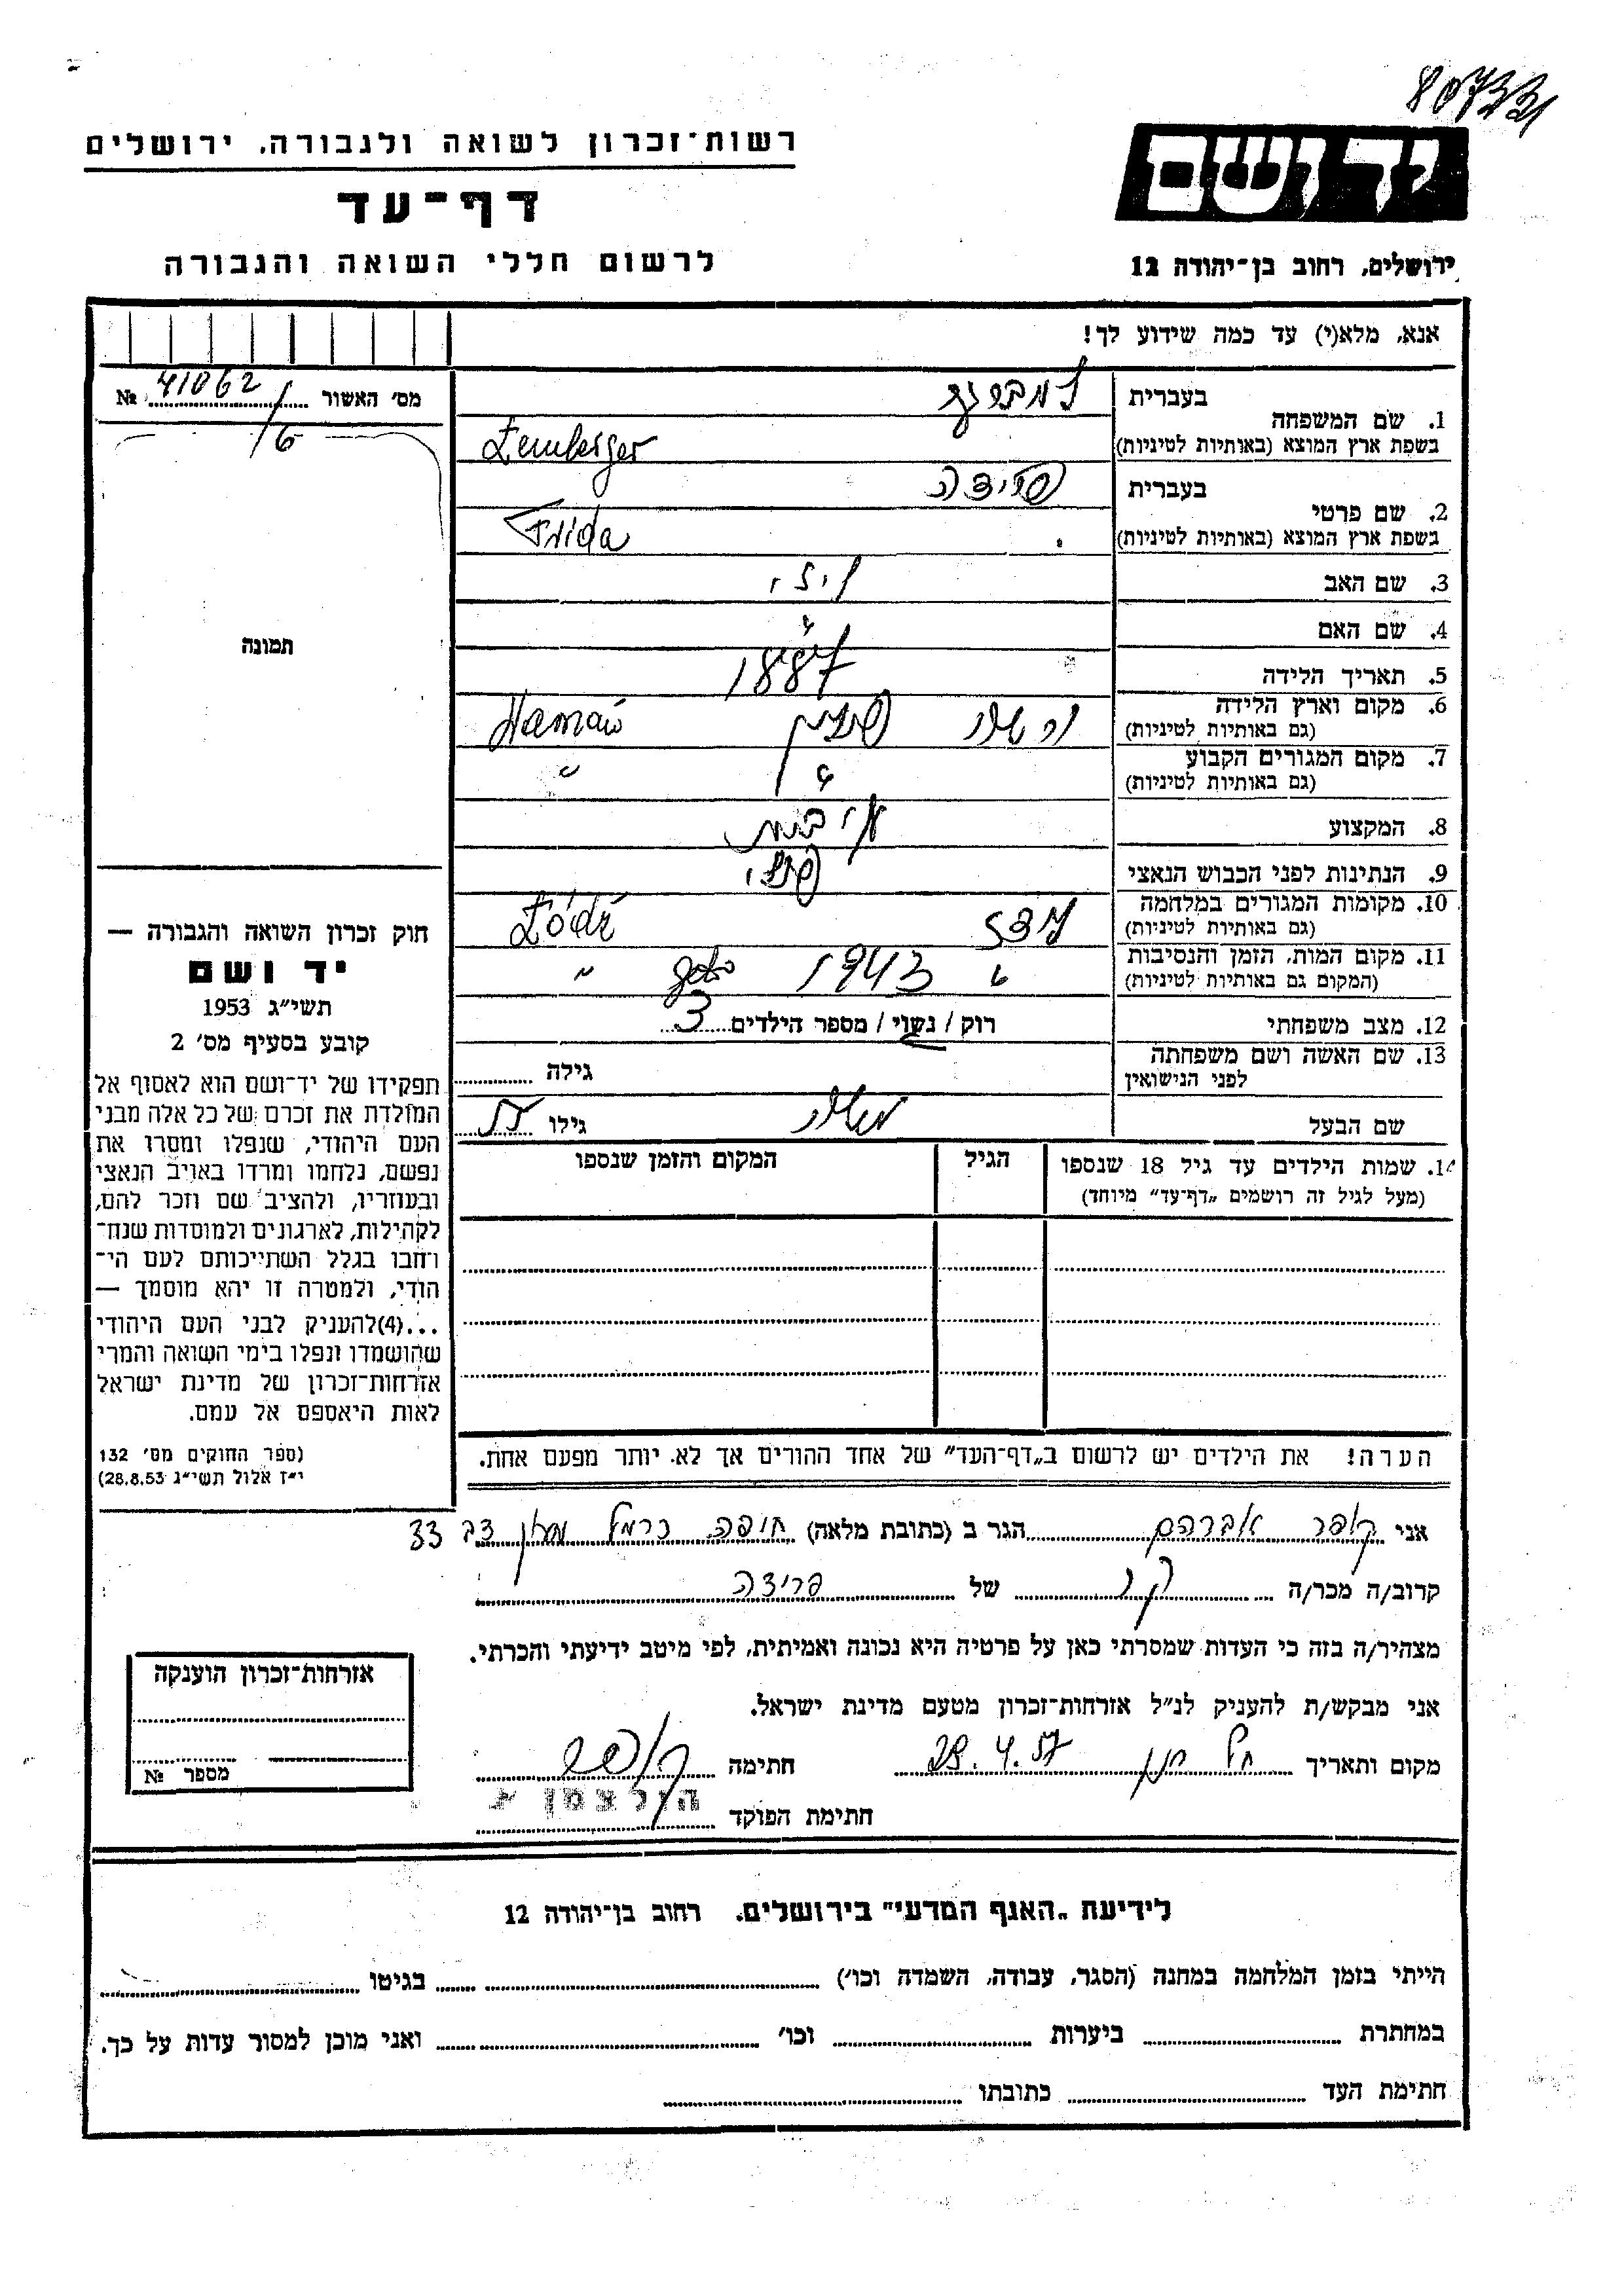 807331
רשות־זכרון לשואה ולגבורה, ירושלים
יד ושם
דף־עד
לרשום חללי השואה והגבורה
ירושלים, רחוב בן־יהודה 12
אנא, מלא(י) עד כמה שידוע לך!
מס׳ האשור № 41062/6
תמונה
1. שם המשפחה
בעברית למברגר
בשפת ארץ המוצא (באותיות לטיניות) Lemberger
2. שם פרטי
בעברית פרידה
בשפת ארץ המוצא (באותיות לטיניות) Frida
3. שם האב
4. שם האם "
5. תאריך הלידה 1887
6. מקום וארץ הלידה
(גם באותיות לטיניות) פולין
7. מקום המגורים הקבוע
(גם באותיות לטיניות) " "
8. המקצוע
9. הנתינות לפני הכבוש הנאצי פולני
10. מקומות המגורים במלחמה
(גם באותיות לטיניות) לודז Łódź
11. מקום המות, הזמן והנסיבות
(המקום גם באותיות לטיניות) " 1943 geto "
12. מצב משפחתי רוק / נשוי / מספר הילדים 3
13. שם האשה ושם משפחתה
לפני הנישואין גילה
שם הבעל גילו
14. שמות הילדים עד גיל 18 שנספו
(מעל לגיל זה רושמים „דף־עד” מיוחד)
הגיל
המקום והזמן שנספו
חוק זכרון השואה והגבורה —
יד ושם
תשי״ג 1953
קובע בסעיף מס׳ 2
תפקידו של יד־ושם הוא לאסוף אל
המולדת את זכרם של כל אלה מבני
העם היהודי, שנפלו ומסרו את
נפשם, נלחמו ומרדו באויב הנאצי
ובעוזריו, ולהציב שם וזכר להם,
לקהילות, לארגונים ולמוסדות שנח־
רחבו בגלל השתייכותם לעם הי־
הודי, ולמטרה זו יהא מוסמך —
...(4)להעניק לבני העם היהודי
שהושמדו ונפלו בימי השואה והמרי
אזרחות־זכרון של מדינת ישראל
לאות היאספם אל עמם.
(ספר החוקים מס׳ 132
י״ז אלול תשי״ג 28.8.53)
הערה! את הילדים יש לרשום ב„דף־העד” של אחד ההורים אך לא יותר מפעם אחת.
אני קופר אברהם הגר ב (כתובת מלאה) חיפה כרמל 33
קרוב/ה מכר/ה של פרידה
מצהיר/ה בזה כי העדות שמסרתי כאן על פרטיה היא נכונה ואמיתית, לפי מיטב ידיעתי והכרתי.
אני מבקש/ת להעניק לנ״ל אזרחות־זכרון מטעם מדינת ישראל.
מקום ותאריך 28.4.57 חתימה קופר
חתימת הפוקד הולצמן
אזרחות־זכרון הוענקה
מספר №
לידיעת „האגף המדעי” בירושלים, רחוב בן־יהודה 12
הייתי בזמן המלחמה במחנה (הסגר, עבודה, השמדה וכו׳) בגיטו
במחתרת ביערות וכו׳ ואני מוכן למסור עדות על כך.
חתימת העד כתובתו